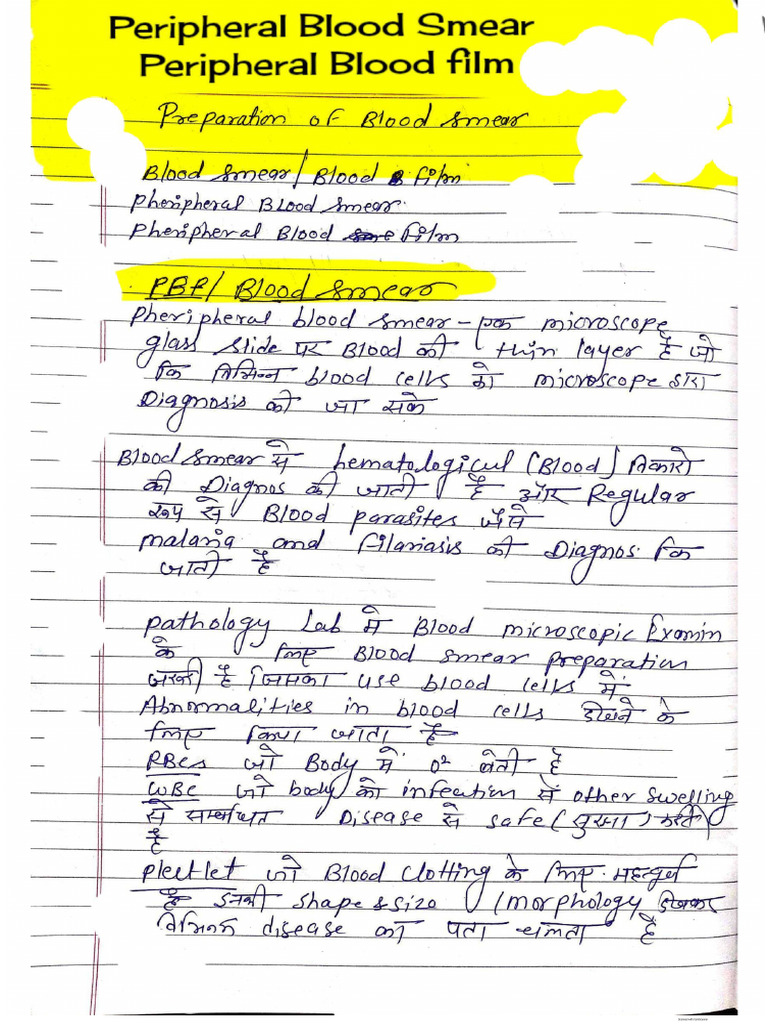 Peripheral Blood Smear
Peripheral Blood film
Preparation of Blood smear
Blood smear/Blood film
Pheripheral Blood smear
Pheripheral Blood film
PBF/ Blood smear
Pheripheral blood smear - एक microscope
glass slide पर Blood की thin layer है जो
कि विभिन्न blood cells को microscope द्वारा
Diagnosis की जा सके
Blood smear से hematological (Blood) विकारो
की Diagnos की जाती है और Regular
रूप से Blood parasites जैसे
malaria and filariasis की Diagnos कि
जाती है
pathology Lab मे Blood microscopic Examin
के लिए Blood smear preparation
जरूरी है जिसका use blood cells में
Abnormalities in blood cells देखने के
लिए किया जाता है
RBCs जो Body में O² देती है
WBC जो body को infection से other swelling
से सम्बंधित Disease से safe (सुरक्षा) करती
है
plectlet जो Blood clotting के लिए महत्वपूर्ण
है इनकी shape & size (morphology देखकर
विभिन्न disease का पता चलता है